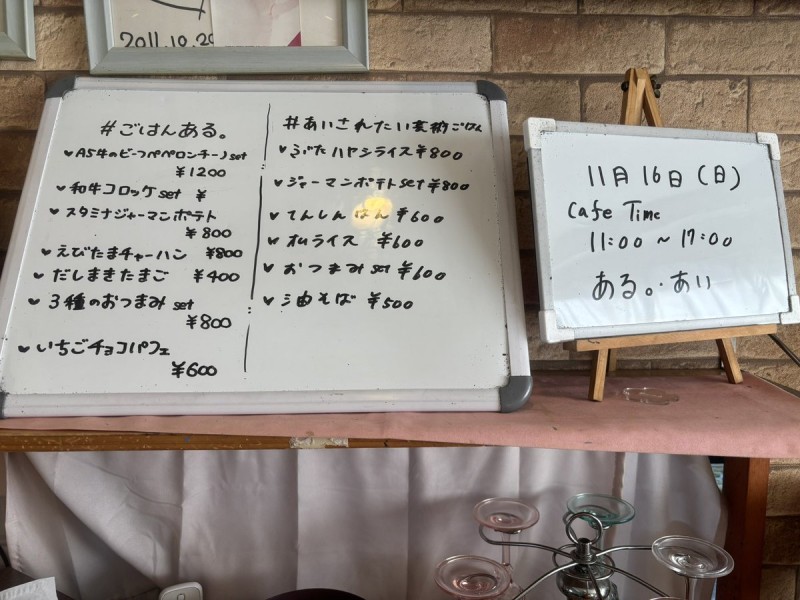 2011.10.29
#ごはんある。
♥ A5牛のビーフペペロンチーノset
¥1200
♥ 和牛コロッケset ¥
♥ スタミナジャーマンポテト
¥800
♥ えびたまチャーハン ¥800
♥ だしまきたまご ¥400
♥ 3種のおつまみ set
¥800
♥ いちごチョコパフェ
¥600
#あいされたい実術ごはん
♥ ぶたハヤシライス ¥800
♥ ジャーマンポテトset ¥800
♥ てんしんはん ¥600
♥ オムライス ¥600
♥ おつまみ set ¥600
♥ 油そば ¥500
11月16日(日)
Cafe Time
11:00 ~ 17:00
ある。・あい